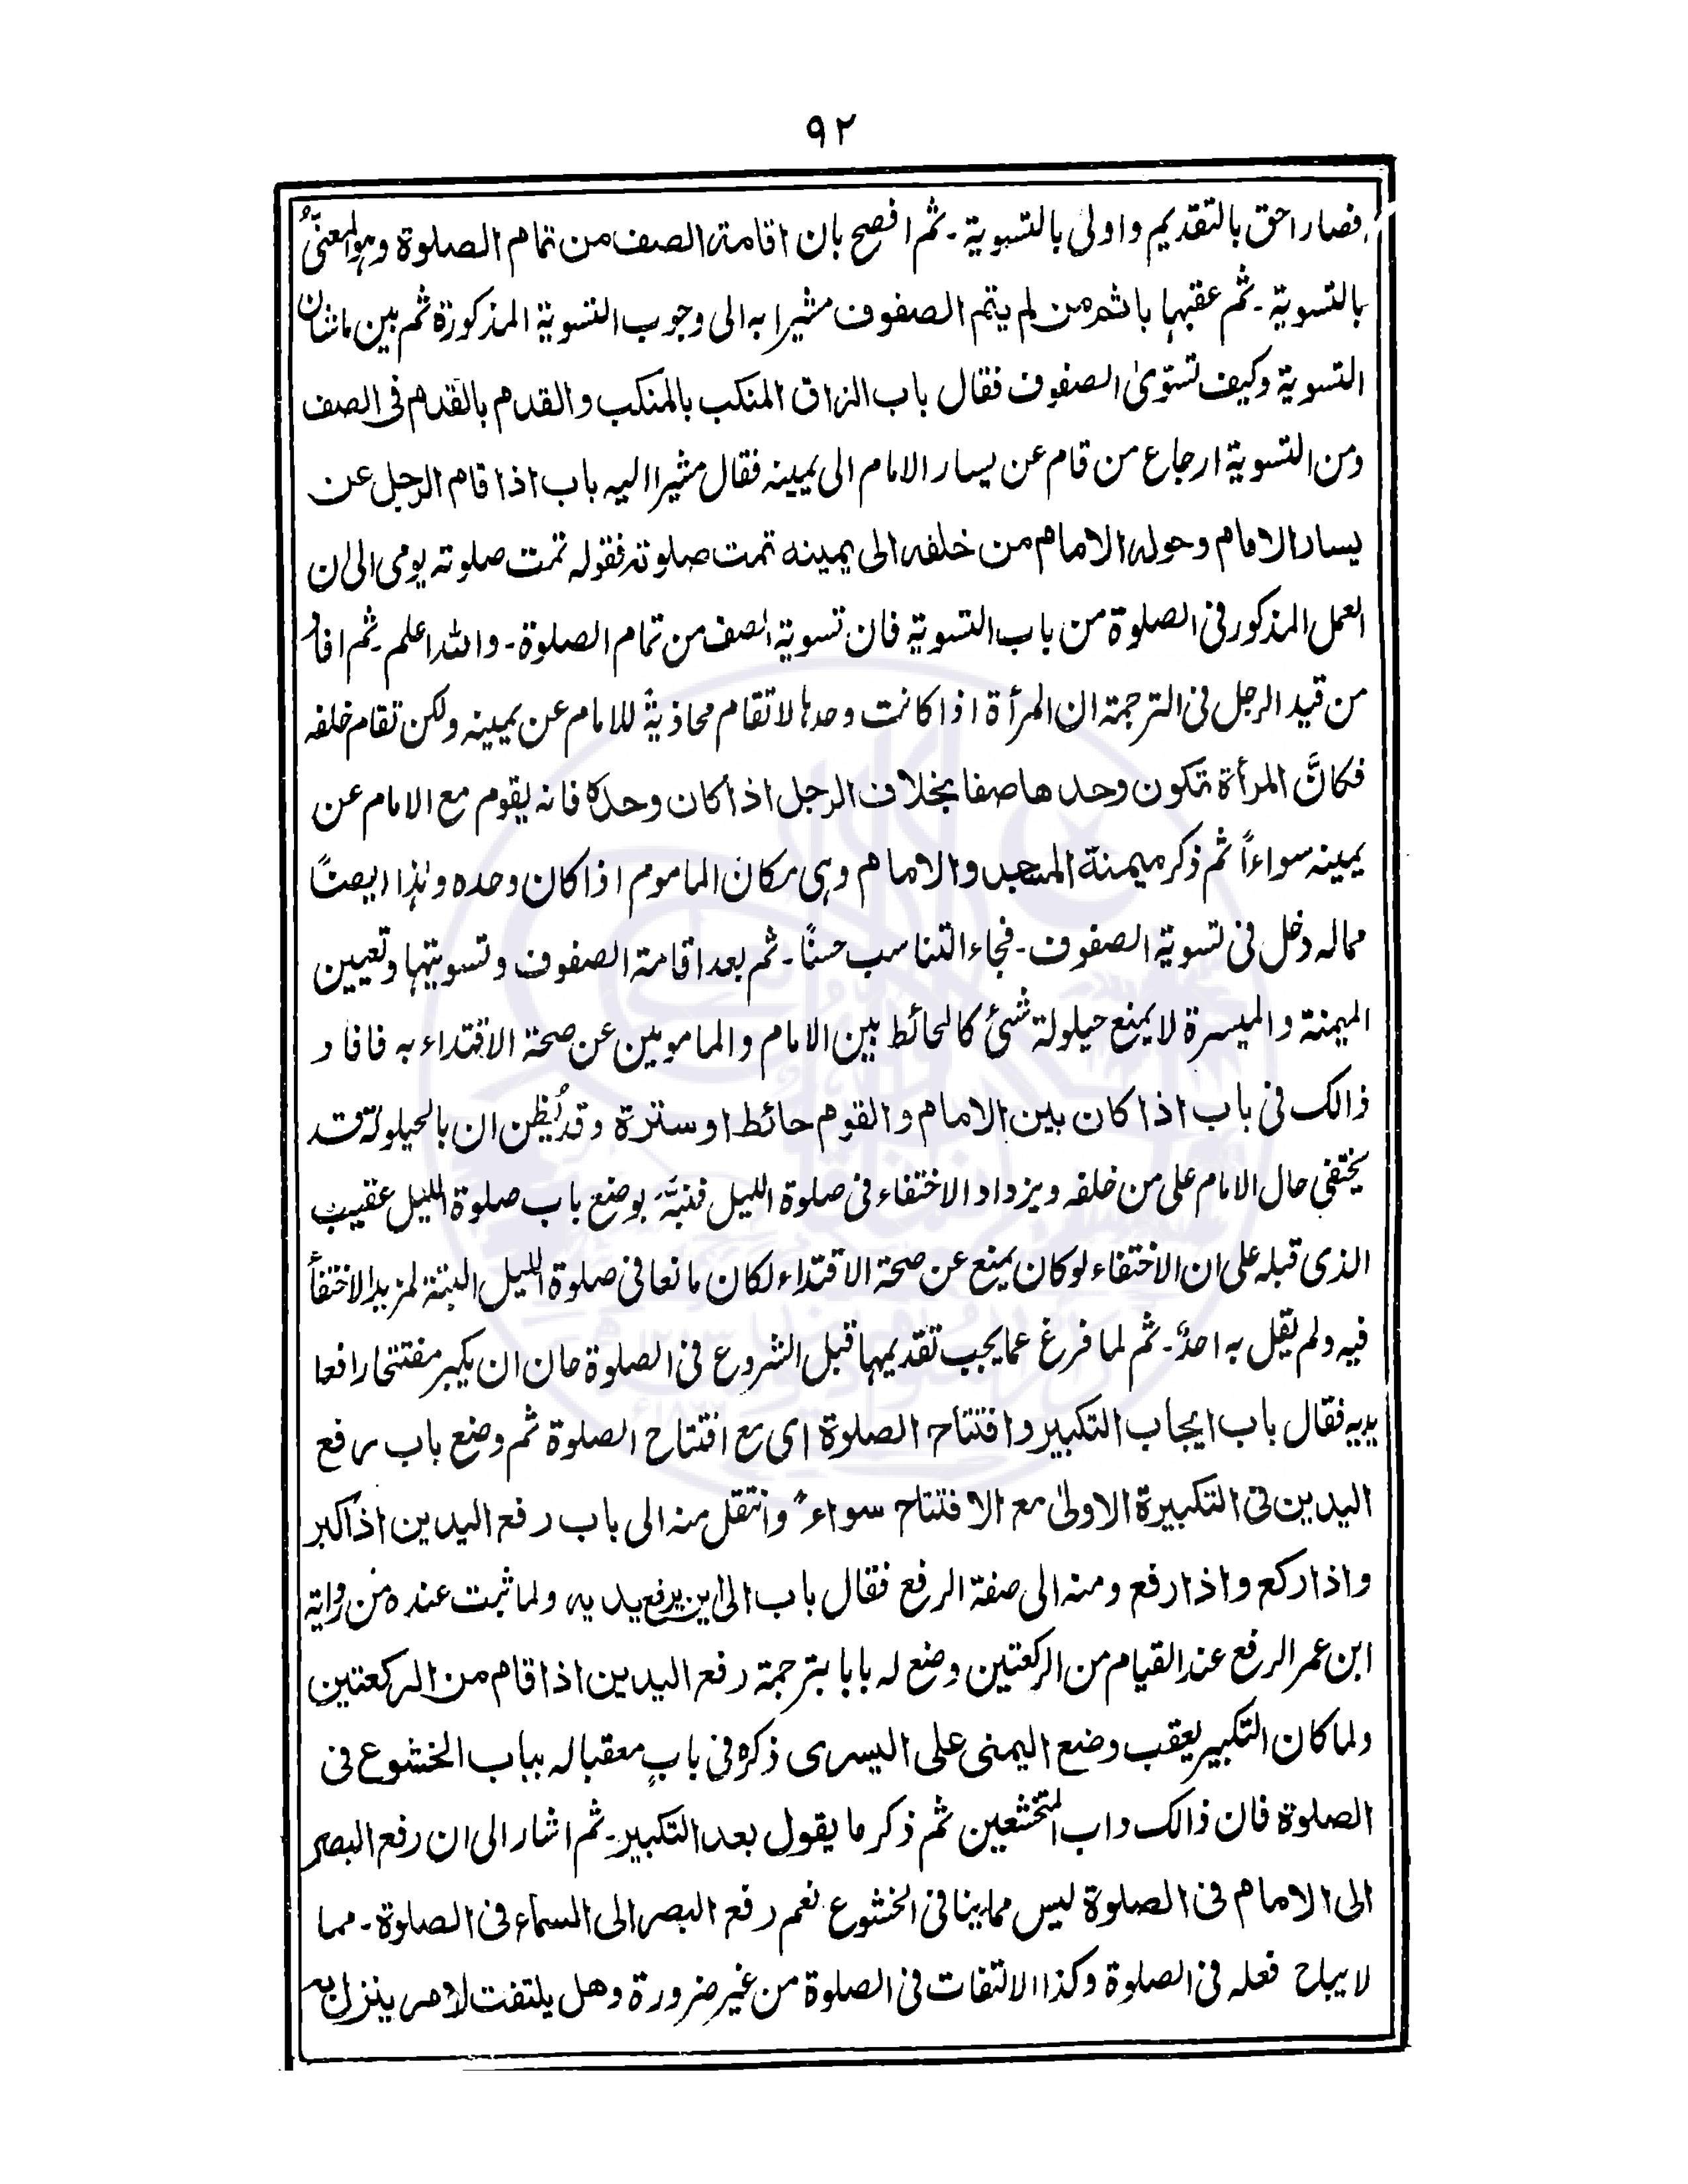 ٩٢
فصار احق بالتقديم واولى بالتسوية ۔ ثم افصح بان اقامة الصف من تمام الصلوة وهو المعنىّ
بالتسوية ۔ ثم عقبها باثم من لم يتم الصفوف مشيرا به الى وجوب التسوية المذكورة ثم بين ماشان
التسوية وكيف تستوى الصفوف فقال باب الزاق المنكب بالمنكب والقدم بالقدم فى الصف
ومن التسوية ارجاع من قام عن يسار الامام الى يمينه فقال مشيرا اليه باب اذا قام الرجل عن
يسار الامام وحوله الامام من خلفه الى يمينه تمت صلوته فقوله تمت صلوته يومى الى ان
العمل المذكور فى الصلوة من باب التسوية فان تسوية الصف من تمام الصلوة ۔ والله اعلم ۔ ثم افاد
من قيد الرجل فى الترجمة ان المرأة اذا كانت وحدها لا تقام محاذيةً للامام عن يمينه ولكن تقام خلفه
فكانَّ المرأة تكون وحدها صفا بخلاف الرجل اذا كان وحده فانه يقوم مع الامام عن
يمينه سواءاً ثم ذكر ميمنة المسجد والامام وهى مكان الماموم اذا كان وحده وهذا ايضاً
مماله دخل فى تسوية الصفوف ۔ فجاء التناسب حسنًا ۔ ثم بعد اقامة الصفوف وتسويتها وتعيين
الميمنة والميسرة لا يمنع حيلولة شئ كالحائط بين الامام والمامومين عن صحة الاقتداء به فافاد
ذالك فى باب اذا كان بين الامام والقوم حائط او سترة وقد يُظن ان بالحيلولة قد
يختفى حال الامام على من خلفه ويزداد الاختفاء فى صلوة الليل فنبَّه بوضع باب صلوة الليل عقيب
الذى قبله على ان الاختفاء لو كان يمنع عن صحة الاقتداء لكان مانعا فى صلوة الليل البتة لمزيد الاختفاء
فيه ولم يقل به احدٌ ۔ ثم لما فرغ عما يجب تقديمها قبل الشروع فى الصلوة حان ان يكبر مفتتحا رافعا
يديه فقال باب ايجاب التكبير وافتتاح الصلوة اى مع افتتاح الصلوة ثم وضع باب رفع
اليدين فى التكبيرة الاولىٰ مع الافتتاح سواءً وانتقل منه الى باب رفع اليدين اذا كبر
واذا ركع واذا رفع ومنه الى صفة الرفع فقال باب الىٰ اين يرفع يديه ولما ثبت عنده من رواية
ابن عمر الرفع عند القيام من الركعتين وضع له بابا بترجمة رفع اليدين اذا قام من الركعتين
ولما كان التكبير يعقب وضع اليمنى على اليسرى ذكره فى بابٍ معقبا له بباب الخشوع فى
الصلوة فان ذالك داب المتخشعين ثم ذكر ما يقول بعد التكبير ۔ ثم اشار الى ان رفع البصر
الى الامام فى الصلوة ليس مماينافى الخشوع نعم رفع البصر الى السماء فى الصلوة ۔ مما
لا يباح فعله فى الصلوة وكذا الالتفات فى الصلوة من غير ضرورة وهل يلتفت لامر ينزل به